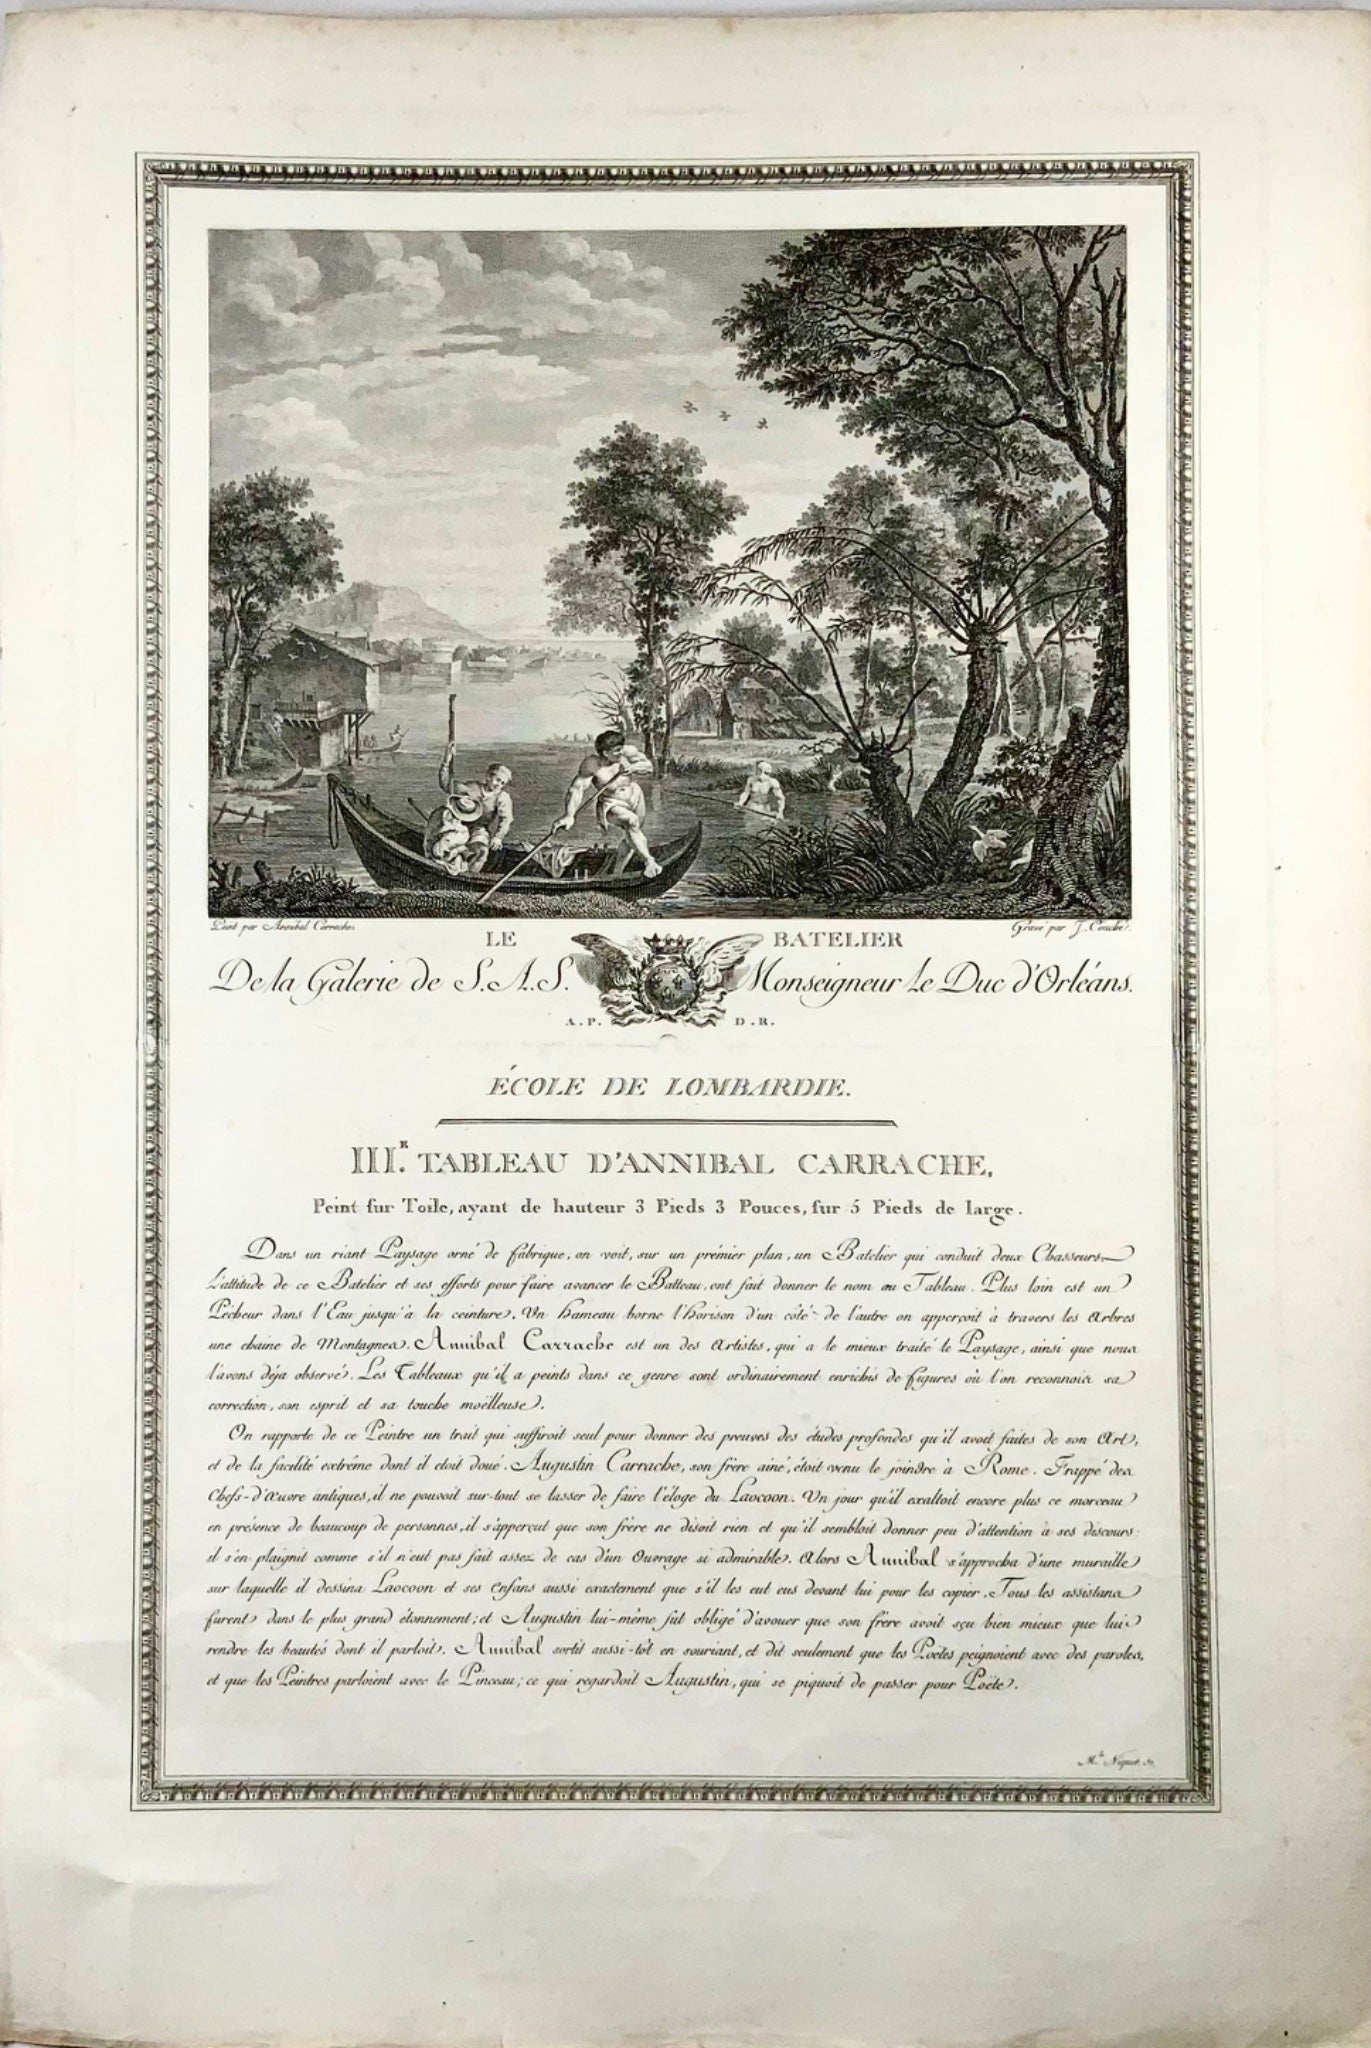 Peint par Annibal Carrache.
Gravé par J. Couché.
LE BATELIER
De la Galerie de S.A.S. Monseigneur le Duc d'Orléans.
A.P. D.R.
ÉCOLE DE LOMBARDIE.
III.E TABLEAU D'ANNIBAL CARRACHE,
Peint sur Toile, ayant de hauteur 3 Pieds 3 Pouces, sur 5 Pieds de large.
Dans un riant Paysage orné de fabrique, on voit, sur un prémier plan, un Batelier qui conduit deux Chasseurs
L'attitude de ce Batelier et ses efforts pour faire avancer le Batteau, ont fait donner le nom au Tableau. Plus loin est un
Pêcheur dans l'Eau jusqu'à la ceinture. Un hameau borne l'horison d'un côté de l'autre on apperçoit à travers les Arbres
une chaine de Montagnes. Annibal Carrache est un des Artistes, qui a le mieux traité le Paysage, ainsi que nous
l'avons déja observé. Les Tableaux qu'il a peints dans ce genre sont ordinairement enrichis de figures où l'on reconnoit sa
correction, son esprit et sa touche moëlleuse.
On rapporte de ce Peintre un trait qui suffiroit seul pour donner des preuves des études profondes qu'il avoit faites de son Art,
et de la facilité extrême dont il etoit doué. Augustin Carrache, son frère ainé, étoit venu le joindre à Rome. Frappé des
Chefs-d'œuvre antiques, il ne pouvoit sur-tout se lasser de faire l'éloge du Laocoon. Un jour qu'il exaltoit encore plus ce morceau
en présence de beaucoup de personnes, il s'apperçut que son frère ne disoit rien et qu'il sembloit donner peu d'attention à ses discours:
il s'en plaignit comme s'il n'eut pas fait assez de cas d'un Ouvrage si admirable. Alors Annibal s'approcha d'une muraille
sur laquelle il dessina Laocoon et ses Enfans aussi exactement que s'il les eut eus devant lui pour les copier. Tous les assistans
furent dans le plus grand étonnement; et Augustin lui-même fut obligé d'avouer que son frère avoit sçu bien mieux que lui
rendre les beautés dont il parloit. Annibal sortit aussi-tôt en souriant, et dit seulement que les Poëtes peignoient avec des paroles,
et que les Peintres parloient avec le Pinceau; ce qui regardoit Augustin, qui se piquoit de passer pour Poëte.
M.lle Niquet. Sc.